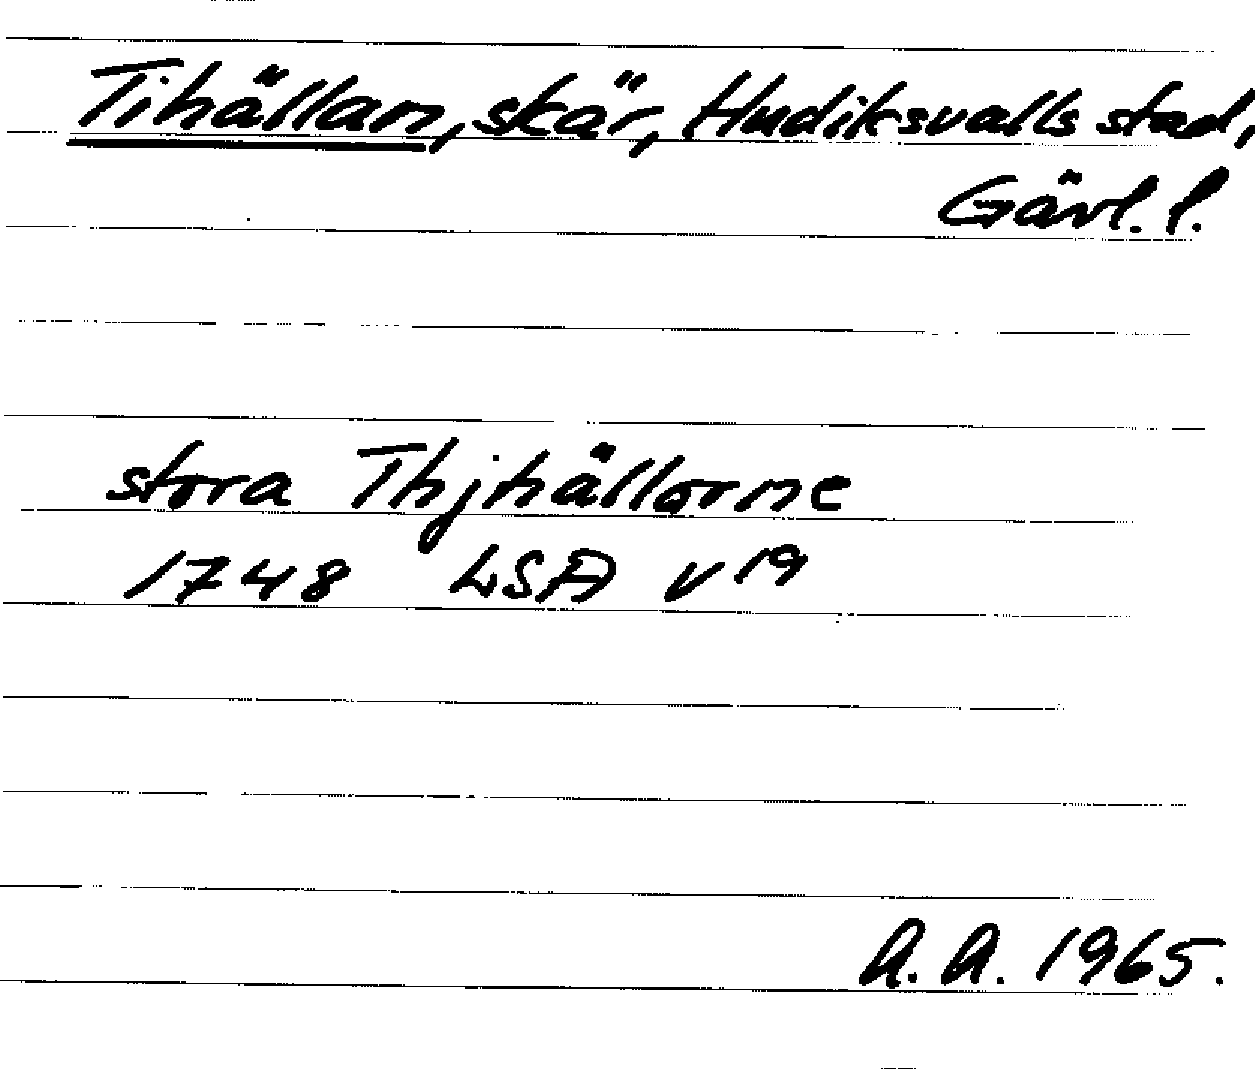 Tihällan, skär, Hudiksvalls stad,
Gävl. l.
stora Thjhällorne
1748 LSA V¹⁹
A. A. 1965.